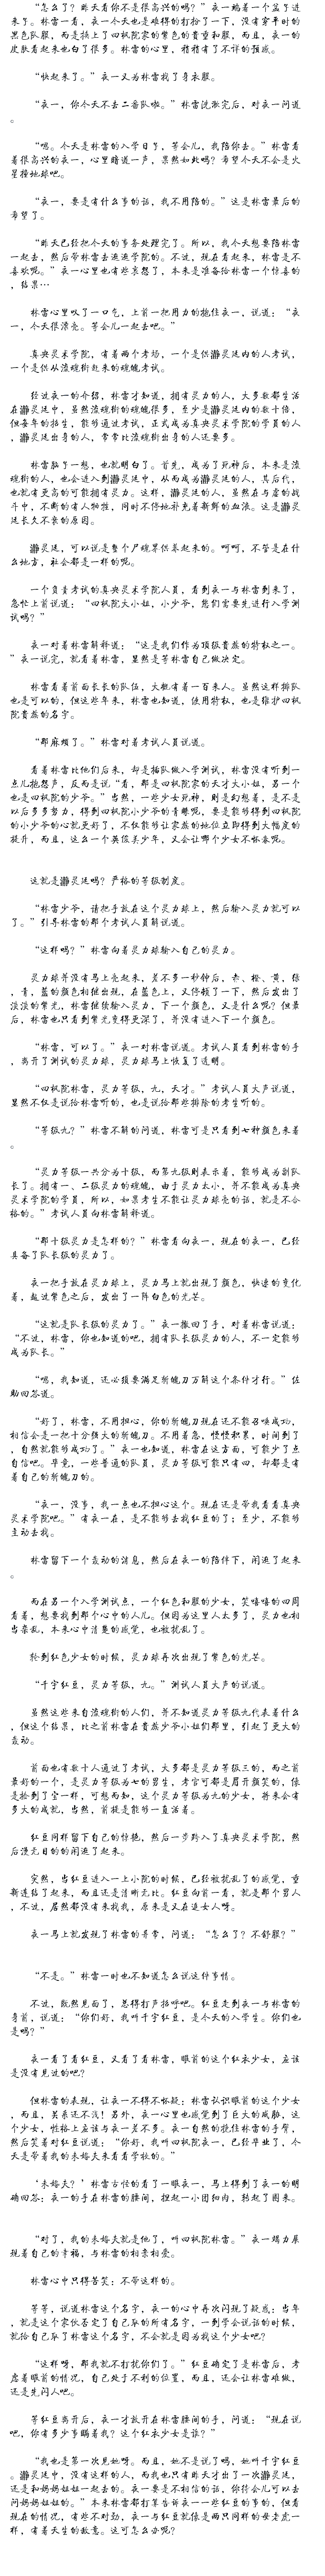 “怎么了？昨天看你不是很高兴的吗？”夜一端着一个盆子进
来了。林雷一看，夜一今天也是难得的打扮了一下，没有穿平时的
黑色队服，而是换上了四枫院家的紫色的贵重和服，而且，夜一的
皮肤看起来也白了很多。林雷的心里，稍稍有了不详的预感。
“快起来了。”夜一又为林雷找了身衣服。
“夜一，你今天不去二番队啦。”林雷洗漱完后，对夜一问道
。
“嗯。今天是林雷的入学日子，等会儿，我陪你去。”林雷看
着很高兴的夜一，心里暗道一声，果然如此吗？希望今天不会是火
星撞地球吧。
“夜一，要是有什么事的话，我不用陪的。”这是林雷最后的
希望了。
“昨天已经把今天的事务处理完了。所以，我今天想要陪林雷
一起去，然后带林雷去逛逛学院的。不过，现在看起来，林雷是不
喜欢呢。”夜一心里也有些哀怨了，本来是准备给林雷一个惊喜的
，结果…
林雷心里叹了一口气，上前一把用力的抱住夜一，说道：“夜
一，今天很漂亮。等会儿一起去吧。”
真央灵术学院，有着两个考场，一个是供瀞灵廷内的人考试，
一个是供从流魂街赶来的魂魄考试。
经过夜一的介绍，林雷才知道，拥有灵力的人，大多数都生活
在瀞灵廷中，虽然流魂街的魂魄很多，至少是瀞灵廷内的数十倍，
但每年的招生，能够通过考试，正式成为真央灵术学院的学员的人
，瀞灵廷出身的人，常常比流魂街出身的人还要多。
林雷脑子一想，也就明白了。首先，成为了死神后，本来是流
魂街的人，也会进入到瀞灵廷中，从而成为瀞灵廷的人，其后代，
也就有更高的可能拥有灵力。这样，瀞灵廷的人，虽然在与虚的战
斗中，不断的有人牺牲，同时不停地补充着新鲜的血液。这是瀞灵
廷长久不衰的原因。
瀞灵廷，可以说是整个尸魂界供养起来的。呵呵，不管是在什
么地方，社会都是一样的呢。
一个负责考试的真央灵术学院人员，看到夜一与林雷到来了，
急忙上前说道：“四枫院大小姐，小少爷，您们需要先进行入学测
试吗？”
夜一对着林雷解释道：“这是我们作为顶级贵族的特权之一。
”夜一说完，就看着林雷，显然是等林雷自己做决定。
林雷看着前面长长的队伍，大概有着一百来人。虽然这样排队
也是可以的，但这些年来，林雷也知道，使用特权，也是维护四枫
院贵族的名字。
“那麻烦了。”林雷对着考试人员说道。
看着林雷比他们后来，却是插队做入学测试，林雷没有听到一
点儿抱怨声，反而是说“看，那是四枫院家的天才大小姐，另一个
也是四枫院的少爷。”当然，一些少女死神，则是幻想着，是不是
以后多多努力，得到四枫院小少爷的青睐呢，要是能够得到四枫院
的小少爷的心就更好了，不仅能够让家族的地位立即得到大幅度的
提升，而且，这么一个英俊美少年，又会让哪个少女不怀春呢。
这就是瀞灵廷吗？严格的等级制度。
“林雷少爷，请把手放在这个灵力球上，然后输入灵力就可以
了。”引导林雷的那个考试人员解说道。
“这样吗？”林雷向着灵力球输入自己的灵力。
灵力球并没有马上亮起来，差不多一秒钟后，赤、橙、黄，绿
，青，蓝的颜色相继出现，在蓝色上，又停顿了一下，然后发出了
淡淡的紫光，林雷继续输入灵力，下一个颜色，又是什么呢？但最
后，林雷也只看到紫光变得更深了，并没有进入下一个颜色。
“林雷，可以了。”夜一对林雷说道。考试人员看到林雷的手
，离开了测试的灵力球，灵力球马上恢复了透明。
“四枫院林雷，灵力等级，九，天才。”考试人员大声说道，
显然不仅是说给林雷听的，也是说给那些排除的考生听的。
“等级九？”林雷不解的问道，林雷可是只看到七种颜色来着
。
“灵力等级一共分为十级，而第九级则表示着，能够成为副队
长了。拥有一、二级灵力的魂魄，由于灵力太小，并不能成为真央
灵术学院的学员，所以，如果考生不能让灵力球亮的话，就是不合
格的。”考试人员向林雷解释道。
“那十级灵力是怎样的？”林雷看向夜一，现在的夜一，已经
具备了队长级的灵力了。
夜一把手放在灵力球上，灵力马上就出现了颜色，快速的变化
着，越过紫色之后，发出了一阵白色的光芒。
“这就是队长级的灵力了。”夜一撤回了手，对着林雷说道：
“不过，林雷，你也知道的吧，拥有队长级灵力的人，不一定能够
成为队长。”
“嗯，我知道，还必须要满足斩魄刀万解这个条件才行。”佐
助回答道。
“好了，林雷，不用担心，你的斩魄刀现在还不能召唤成功，
相信会是一把十分强大的斩魄刀。不用着急，慢慢积累，时间到了
，自然就能够成功了。”夜一也知道，林雷在这方面，可能少了点
自信吧。毕竟，一些普通的队员，灵力等级可能只有四，却都是有
着自己的斩魄刀的。
“夜一，没事，我一点也不担心这个。现在还是带我看看真央
灵术学院吧。”有夜一在，是不能够去找红豆的了；至少，不能够
主动去找。
林雷留下一个轰动的消息，然后在夜一的陪伴下，闲逛了起来
。
而在另一个入学测试点，一个红色和服的少女，笑嘻嘻的四周
看着，想要找到那个心中的人儿。但因为这里人太多了，灵力也相
当杂乱，本来心中清楚的感觉，也被扰乱了。
轮到红色少女的时候，灵力球再次出现了紫色的光芒。
“千宇红豆，灵力等级，九。”测试人员大声的说道。
虽然这些来自流魂街的人们，并不知道灵力等级九代表着什么
，但这个结果，比之前林雷在贵族少爷小姐们那里，引起了更大的
轰动。
前面也有数十人通过了考试，大多都是灵力等级三的，而之前
最好的一个，是灵力等级为七的男生，考官可都是眉开颜笑的，像
是捡到了宝一样，可想而知，这个灵力等级为九的少女，将来会有
多大的成就，当然，前提是能够一直活着。
红豆同样留下自己的惊艳，然后一步跨入了真央灵术学院，然
后漫无目的的闲逛了起来。
突然，当红豆进入一上小院的时候，已经被扰乱了的感觉，重
新连结了起来，而且还是清晰无比。红豆向前一看，就是那个男人
，不过，居然都没有来找我，原来是又在追女人呀。
夜一马上就发现了林雷的异常，问道：“怎么了？不舒服？”
“不是。”林雷一时也不知道怎么说这件事情。
不过，既然见面了，总得打声招呼吧。红豆走到夜一与林雷的
身前，说道：“你们好，我叫千宇红豆，是今天的入学生。你们也
是吗？”
夜一看了看红豆，又看了看林雷，眼前的这个红衣少女，应该
是没有见过的吧？
但林雷的表现，让夜一不得不怀疑：林雷认识眼前的这个少女
，而且，关系还不浅！另外，夜一心里也感觉到了巨大的威胁，这
个少女，性格上应该与夜一差不多。夜一自然的挽住林雷的手臂，
然后笑着对红豆说道：“你好，我叫四枫院夜一，已经毕业了，今
天是带着我的未婚夫来看看学校的。”
“未婚夫？”林雷古怪的看了一眼夜一，马上得到了夜一的明
确回答：夜一的手在林雷的腰间，捏起一小团细肉，转起了圈来。
“对了，我的未婚夫就是他了，叫四枫院林雷。”夜一竭力展
现着自己的幸福，与林雷的相亲相爱。
林雷心中只得苦笑：不带这样的。
等等，说道林雷这个名字，夜一的心中再次闪现了疑惑：当年
，就是这个家伙否定了自己取的所有名字，一到学会说话的时候，
就给自己取了林雷这个名字，不会就是因为我这个少女吧？
“这样呀，那我就不打扰你们了。”红豆确定了是林雷后，考
虑着眼前的情况，自己处于不利的位置，而且，还会让林雷难做，
还是先闪人吧。
等红豆离开后，夜一才放开在林雷腰间的手，问道：“现在说
吧，你有多少事瞒着我？这个红衣少女是谁？”
“我也是第一次见她呀。而且，她不是说了吗，她叫千宇红豆
。瀞灵廷中，没有这样的人，而我也只有昨天才出了一次瀞灵廷，
还是和妈妈姐姐一起去的。夜一要是不相信的话，你待会儿可以去
问妈妈姐姐的。”本来林雷都打算告诉夜一一些红豆的事的，但看
现在的情况，有些不对劲，夜一与红豆就像是两只同样的母老虎一
样，有着天生的敌意。这可怎么办呢？